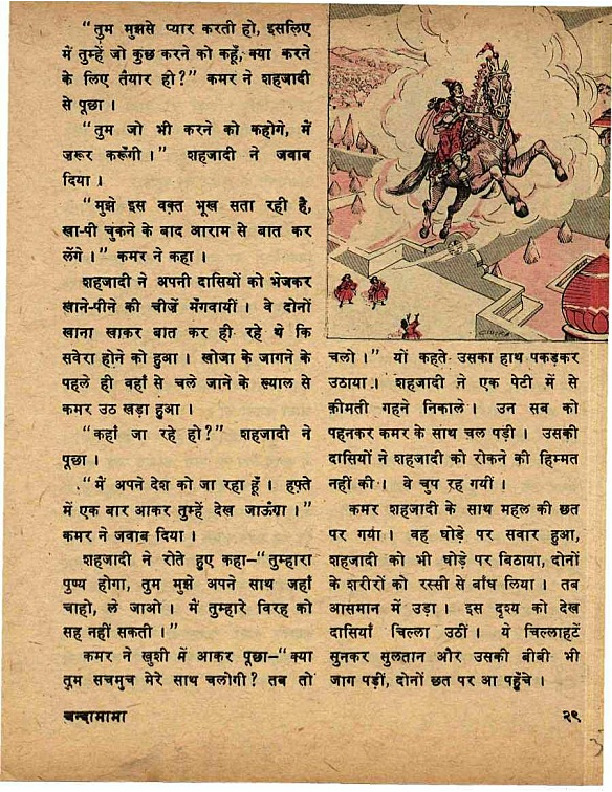 “तुम मुझसे प्यार करती हो, इसलिए
में तुम्हें जो कुछ करने को कहूँ, क्या करने
के लिए तैयार हो?” कमर ने शहजादी
से पूछा ।
“तुम जो भी करने को कहोगे, में
ज़रूर करूँगी ।” शहजादी ने जवाब
दिया ।
“मुझे इस वक़्त भूख सता रही है,
खा-पी चुकने के बाद आराम से बात कर
लेंगे ।” कमर ने कहा ।
शहजादी ने अपनी दासियों को भेजकर
खाने-पीने की चीजें मँगवायीं । वे दोनों
खाना खाकर बात कर ही रहे थे कि
सवेरा होने को हुआ । खोजा के जागने के
पहले ही वहाँ से चले जाने के ख्याल से
कमर उठ खड़ा हुआ ।
“कहाँ जा रहे हो?” शहजादी ने
पूछा ।
“मैं अपने देश को जा रहा हूँ । हफ्ते
में एक बार आकर तुम्हें देख जाऊँगा ।”
कमर ने जवाब दिया ।
शहजादी ने रोते हुए कहा—“तुम्हारा
पुण्य होगा, तुम मुझे अपने साथ जहाँ
चाहो, ले जाओ । मैं तुम्हारे विरह को
सह नहीं सकती ।”
कमर ने खुशी में आकर पूछा—“क्या
तूम सचमुच मेरे साथ चलोगी? तब तो
चलो ।” यों कहते उसका हाथ पकड़कर
उठाया । शहजादी ने एक पेटी में से
क़ीमती गहने निकाले । उन सब को
पहनकर कमर के साथ चल पड़ी । उसकी
दासियों ने शहजादी को रोकने की हिम्मत
नहीं की । वे चुप रह गयीं ।
कमर शहजादी के साथ महल की छत
पर गया । वह घोड़े पर सवार हुआ,
शहजादी को भी घोड़े पर बिठाया, दोनों
के शरीरों को रस्सी से बाँध लिया । तब
आसमान में उड़ा । इस दृश्य को देख
दासियाँ चिल्ला उठीं । ये चिल्लाहटें
सुनकर सुलतान और उसकी बीबी भी
जाग पड़ीं, दोनों छत पर आ पहूँचे ।
चन्दामामा
२९